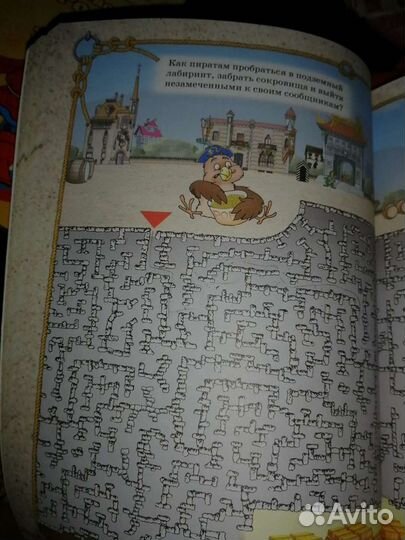 Как пиратам пробраться в подземный
лабиринт, забрать сокровища и выйти
незамеченными к своим сообщникам?
Avito